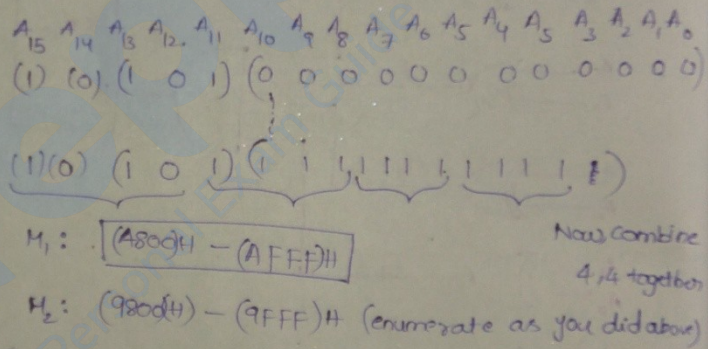 A15 A14 A13 A12 A11 A10 A9 A8 A7 A6 A5 A4 A5 A3 A2 A1 A0
(1) (0) (1 0 1) (0 0 0 0 0 0 0 0 0 0 0 0 0)
(1)(0) (1 0 1) (1 1 1, 1 1 1 1, 1 1 1 1 1)
M1: (A800)H - (AFFF)H
Now, combine
4,4 together
M2: (9800)H) - (9FFF)H (enumerate as you did above)